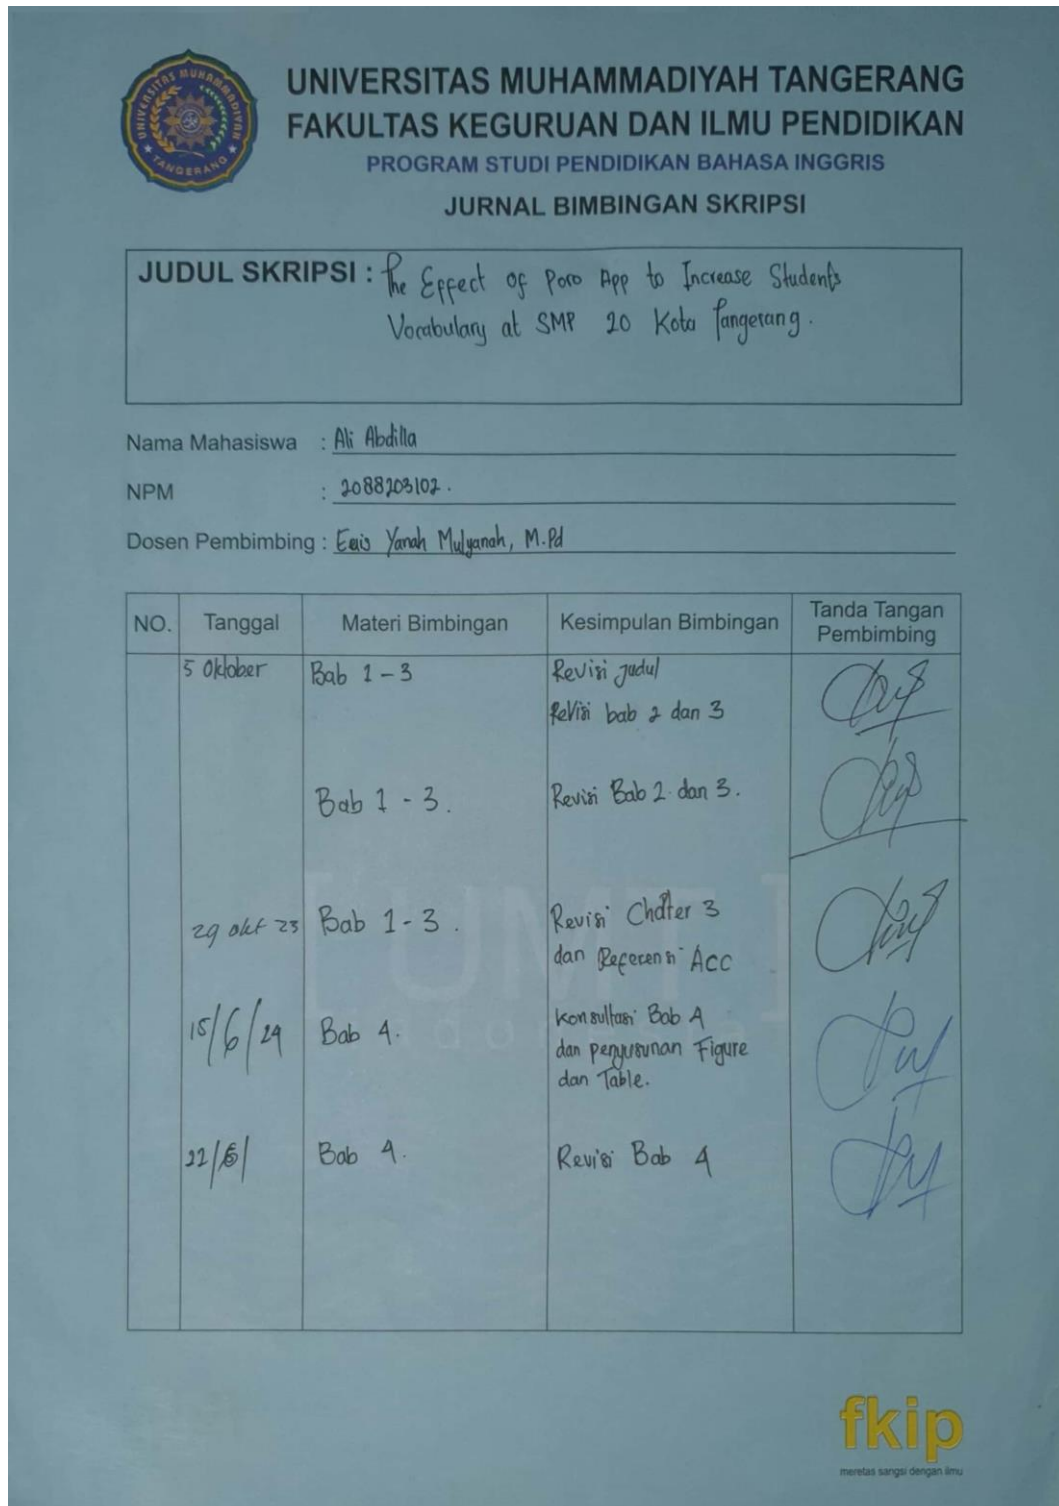 UNIVERSITAS MUHAMMADIYAH TANGERANG
UNIVERSITAS MUHAMMADIYAH TANGERANG
FAKULTAS KEGURUAN DAN ILMU PENDIDIKAN
PROGRAM STUDI PENDIDIKAN BAHASA INGGRIS
JURNAL BIMBINGAN SKRIPSI
JUDUL SKRIPSI : The Effect of Poro App to Increase Students
Vocabulary at SMP 20 Kota Tangerang.
Nama Mahasiswa : Ali Abdilla
NPM : 2088203102.
Dosen Pembimbing : Yanah Mulyanah, M.Pd
NO. Tanggal Materi Bimbingan Kesimpulan Bimbingan Tanda Tangan Pembimbing
5 Oktober Bab 1-3 Revisi judul
Revisi bab 2 dan 3
Bab 1-3. Revisi Bab 2 dan 3.
29 okt 23 Bab 1-3. Revisi Chater 3
dan Referensi Acc
15/6/24 Bab 4. Konsultasi Bab 4
dan penyusunan Figure
dan Table.
22/6/ Bab 4. Revisi Bab 4
[ UMT ]
indonesia
fkip
meretas sangsi dengan ilmu